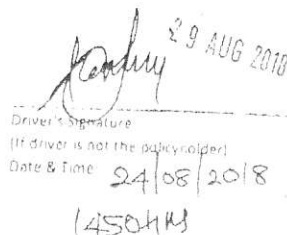 29 AUG 2018
Driver's Signature
(If driver is not the policyholder)
Date & Time 24/08/2018
1450HRS